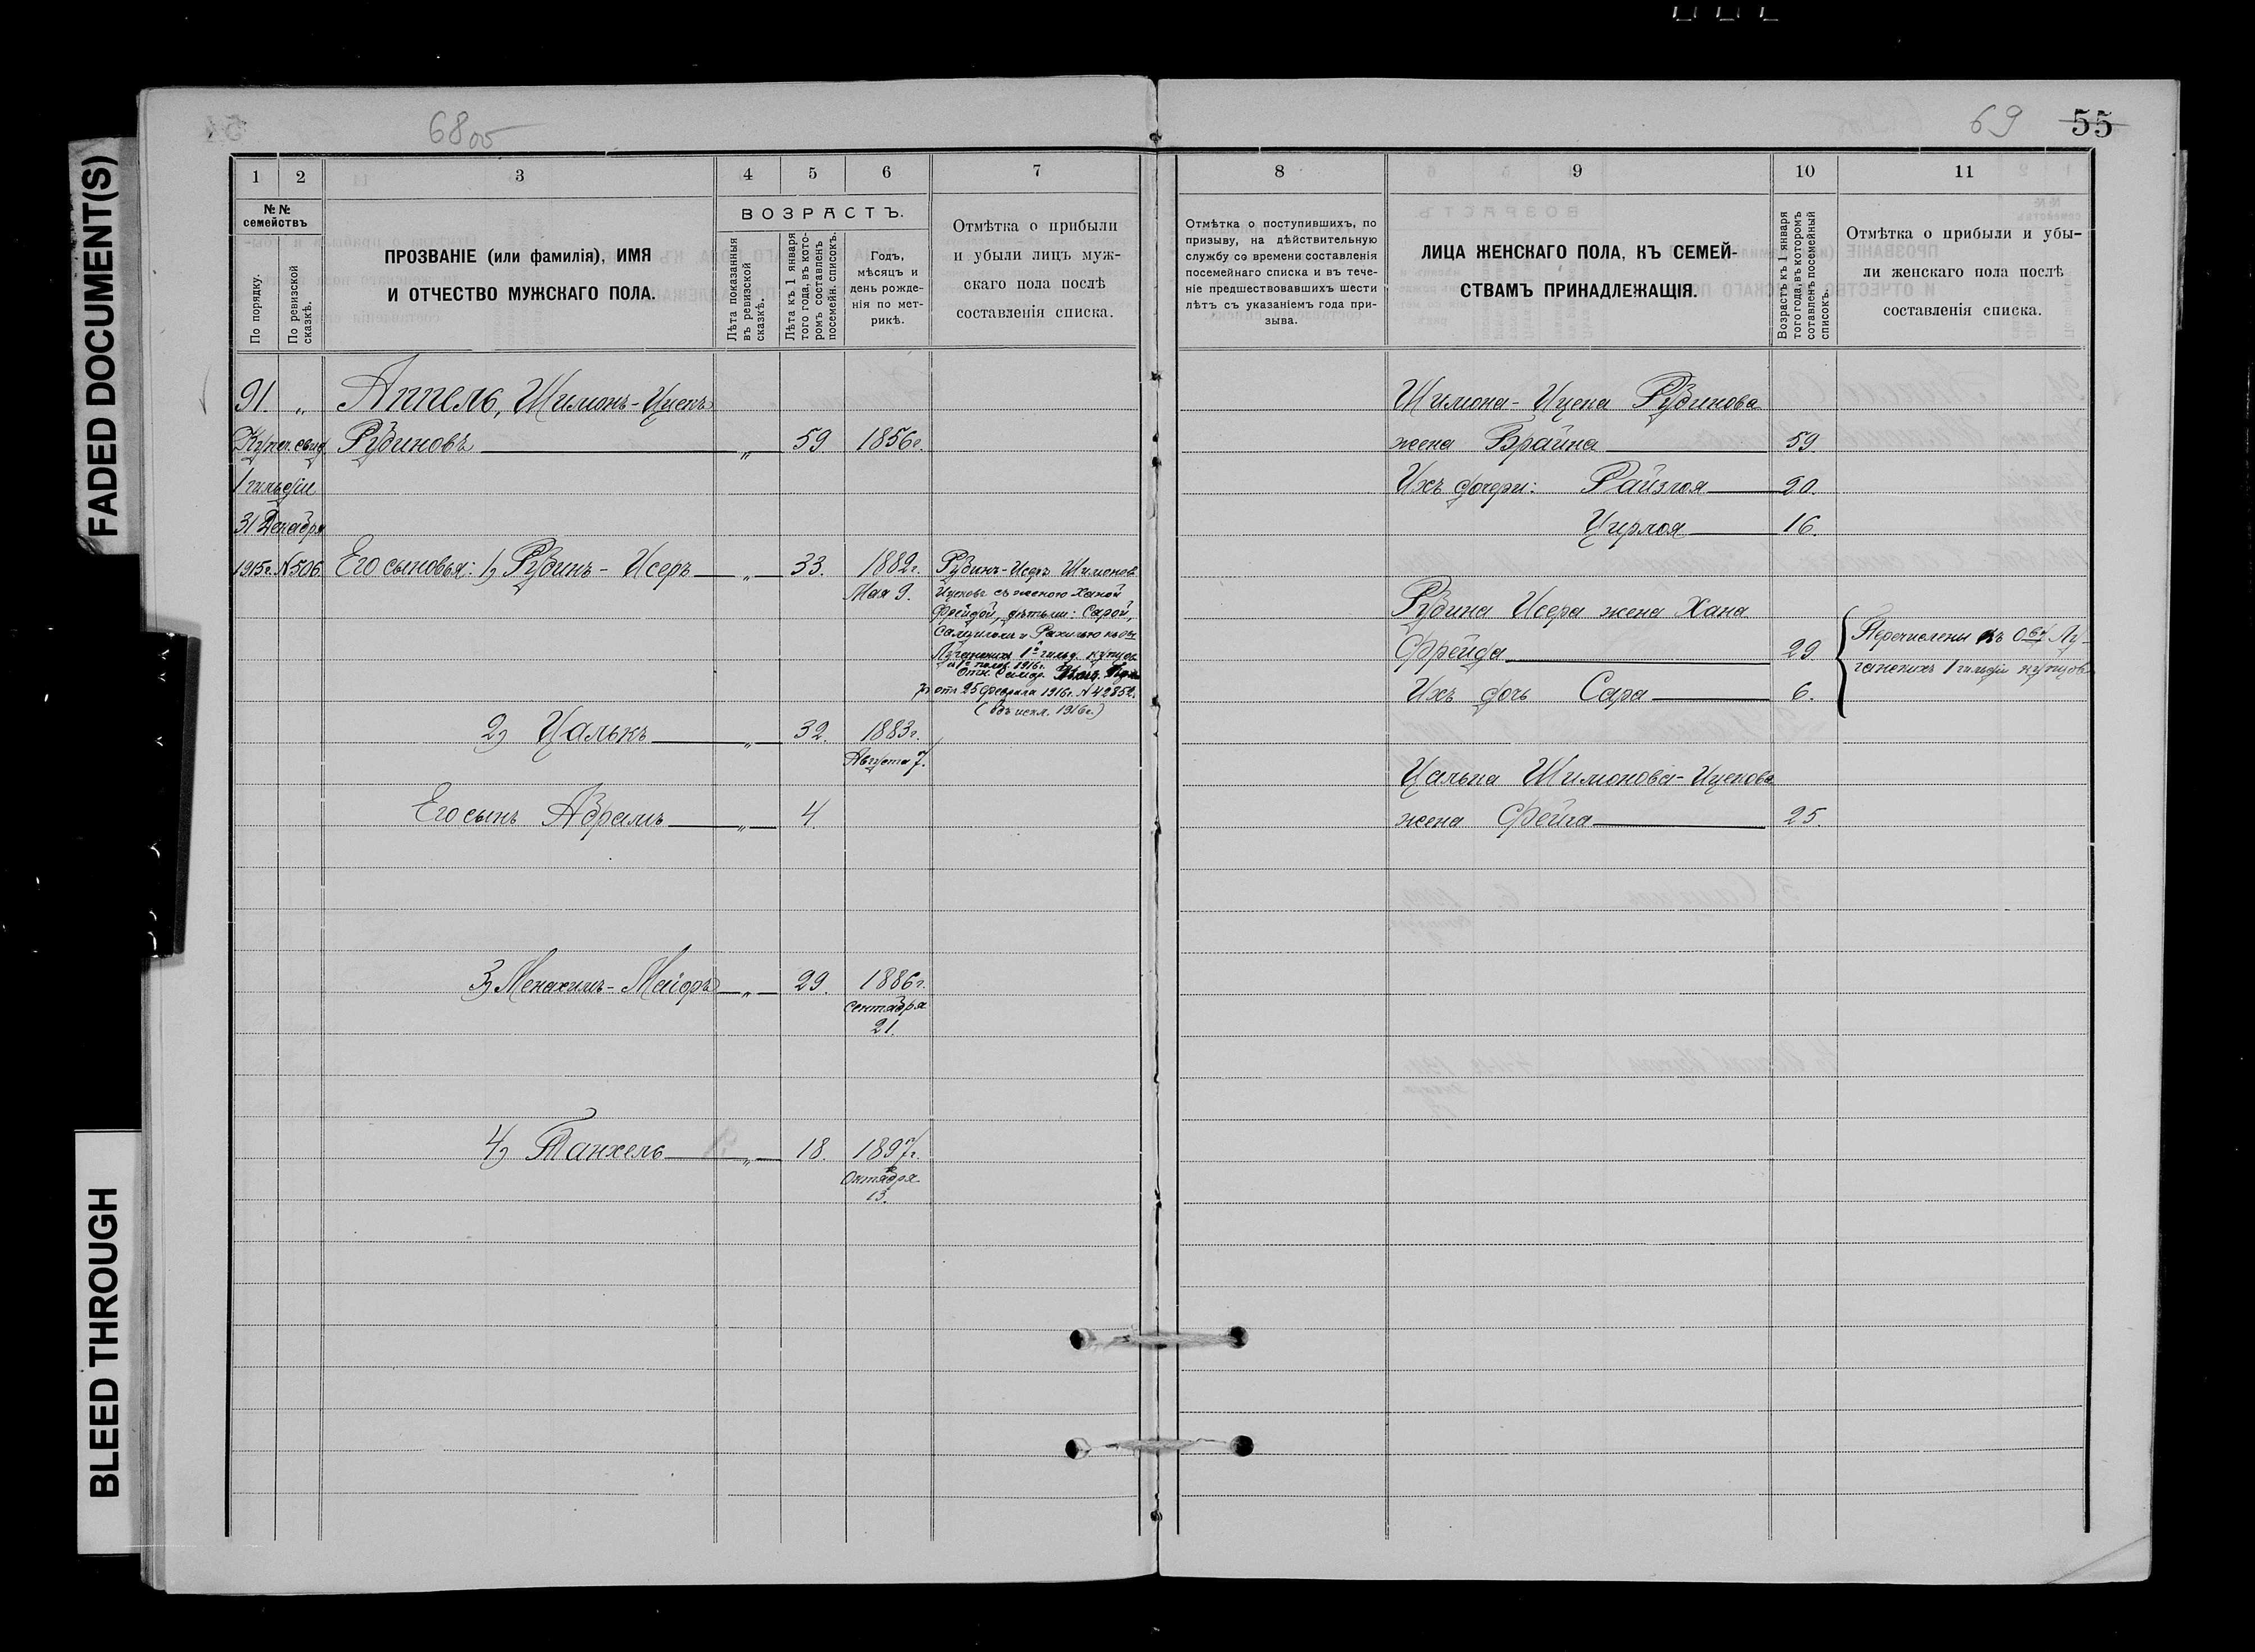 FADED DOCUMENT(S)
BLEED THROUGH
68об
1 2 3 4 5 6 7
№№ семействъ
По порядку.
По ревизской сказкѣ.
ПРОЗВАНІЕ (или фамилія), ИМЯ
И ОТЧЕСТВО МУЖСКАГО ПОЛА.
ВОЗРАСТЪ.
Лѣта показанныя въ ревизской сказкѣ.
Лѣта къ 1 января того года, въ которомъ составленъ посемейн. списокъ.
Годъ,
мѣсяцъ и
день рожде-
нія по мет-
рикѣ.
Отмѣтка о прибыли
и убыли лицъ муж-
скаго пола послѣ
составленія списка.
91. „ Аппель, Шимонъ-Ицекъ
Купеч. свид. Рубиновъ „ 59 1856г.
1 гильдіи
31 Декабря
1915г. №506. Его сыновья: 1) Рубинъ-Исеръ „ 33. 1882г.
Мая 9.
Рубинъ-Исеръ Шимонов
Ицековъ съ женою Ханой
Фрейдой, дѣтьми: Сарой,
и Рахилью
Луганскихъ 1й гильд. купцы
1916г.
отъ 25 Февраля 1916г. №42852.
1916г.)
2) Цалькъ „ 32. 1883г.
Августа 7.
Его сынъ Абрамъ „ 4.
3) Менахимъ-Мейеръ „ 29. 1886г.
Сентября
21.
4) Танхель „ 18. 1897г.
Октября
13.
69 55
8 9 10 11
Отмѣтка о поступившихъ, по
призыву, на дѣйствительную
службу со времени составленія
посемейнаго списка и въ тече-
ніе предшествовавшихъ шести
лѣтъ съ указаніемъ года при-
зыва.
ЛИЦА ЖЕНСКАГО ПОЛА, КЪ СЕМЕЙ-
СТВАМЪ ПРИНАДЛЕЖАЩІЯ.
Возрастъ къ 1 января
того года, въ которомъ
сотавленъ посемейный
списокъ.
Отмѣтка о прибыли и убы-
ли женскаго пола послѣ
составленія списка.
Шимона-Ицека Рубинова
жена Брайна 59.
Ихъ дочери: Райзля 20.
Цирля 16.
Рубина Исера жена Хана
Фрейда 29.
Ихъ дочь Сара 6.
Перечислены въ Лу-
ганскихъ 1 гильдіи купцовъ
Цалька Шимонова-Ицекова
жена Фейга 25.